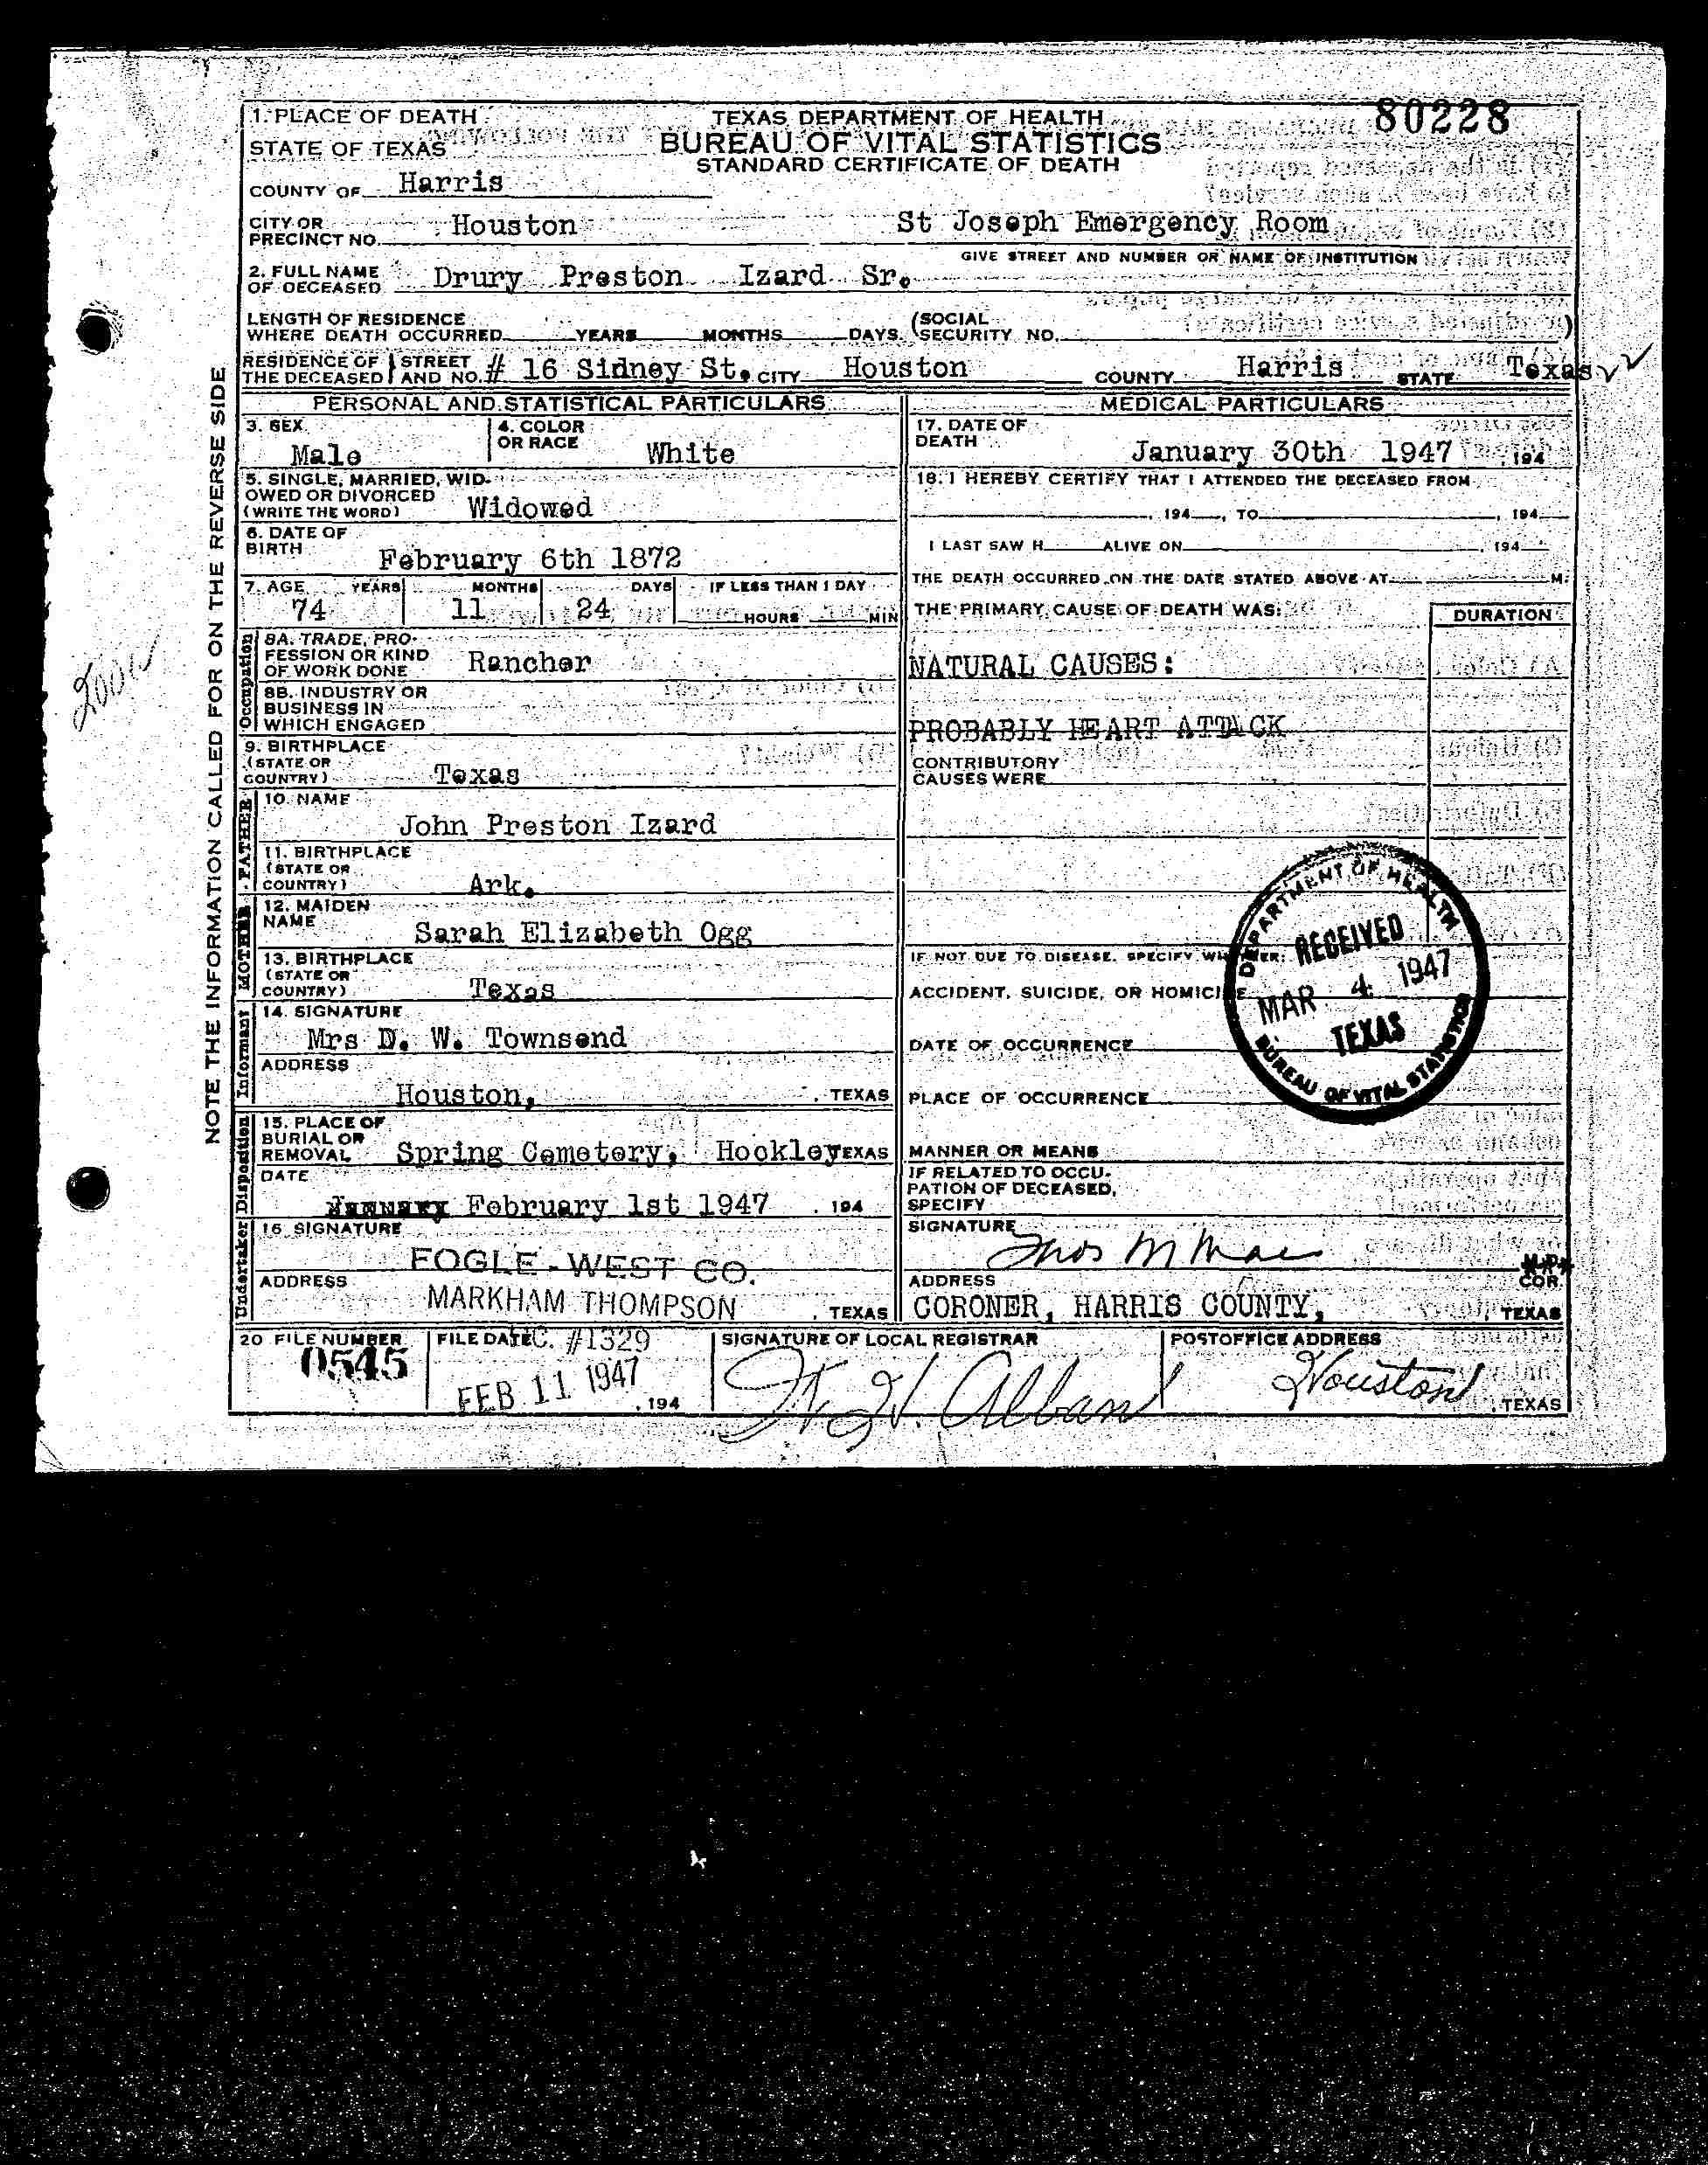 80228
1. PLACE OF DEATH
STATE OF TEXAS
TEXAS DEPARTMENT OF HEALTH
BUREAU OF VITAL STATISTICS
STANDARD CERTIFICATE OF DEATH
COUNTY OF Harris
CITY OR PRECINCT NO. Houston St Joseph Emergency Room
GIVE STREET AND NUMBER OR NAME OF INSTITUTION
2. FULL NAME OF DECEASED Drury Preston Izard Sr.
LENGTH OF RESIDENCE
WHERE DEATH OCCURRED YEARS MONTHS DAYS (SOCIAL SECURITY NO. )
RESIDENCE OF THE DECEASED STREET AND NO. # 16 Sidney St. CITY Houston COUNTY Harris STATE Texas
PERSONAL AND STATISTICAL PARTICULARS
3. SEX Male
4. COLOR OR RACE White
5. SINGLE, MARRIED, WIDOWED OR DIVORCED (WRITE THE WORD) Widowed
6. DATE OF BIRTH February 6th 1872
7. AGE YEARS MONTHS DAYS IF LESS THAN 1 DAY
74 11 24 HOURS MIN
Occupation
8A. TRADE, PROFESSION OR KIND OF WORK DONE Rancher
8B. INDUSTRY OR BUSINESS IN WHICH ENGAGED
9. BIRTHPLACE (STATE OR COUNTRY) Texas
FATHER
10. NAME John Preston Izard
11. BIRTHPLACE (STATE OR COUNTRY) Ark.
MOTHER
12. MAIDEN NAME Sarah Elizabeth Ogg
13. BIRTHPLACE (STATE OR COUNTRY) Texas
Informant
14. SIGNATURE Mrs D. W. Townsend
ADDRESS Houston, , TEXAS
Disposition
15. PLACE OF BURIAL OR REMOVAL Spring Cemetery, Hockley TEXAS
DATE January February 1st 1947 , 194
Undertaker
16 SIGNATURE FOGLE-WEST CO.
ADDRESS MARKHAM THOMPSON , TEXAS
MEDICAL PARTICULARS
17. DATE OF DEATH January 30th 1947 , 194
18. I HEREBY CERTIFY THAT I ATTENDED THE DECEASED FROM
, 194 , TO , 194
I LAST SAW H ALIVE ON , 194
THE DEATH OCCURRED ON THE DATE STATED ABOVE AT M.
THE PRIMARY CAUSE OF DEATH WAS: DURATION
NATURAL CAUSES:
PROBABLY HEART ATTACK
CONTRIBUTORY CAUSES WERE
IF NOT DUE TO DISEASE, SPECIFY WHETHER:
ACCIDENT, SUICIDE, OR HOMICIDE
DATE OF OCCURRENCE
PLACE OF OCCURRENCE
MANNER OR MEANS
IF RELATED TO OCCUPATION OF DECEASED, SPECIFY
DEPARTMENT OF HEALTH
RECEIVED
MAR 4 1947
TEXAS
BUREAU OF VITAL STATISTICS
SIGNATURE
M.D.
COR.
ADDRESS CORONER, HARRIS COUNTY, , TEXAS
20 FILE NUMBER 0545
FILE DATE C. #1329
FEB 11 1947 , 194
SIGNATURE OF LOCAL REGISTRAR
POSTOFFICE ADDRESS Houston , TEXAS
NOTE THE INFORMATION CALLED FOR ON THE REVERSE SIDE